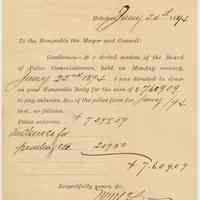 January 26th 1894
To the Honorable the Mayor and Council:
Gentlemen:— At a stated session of the Board
of Police Commissioners, held on Monday evening,
January 22nd 1894, I was directed to draw
on your Honorable Body for the sum of $7,609.09
to pay salaries, &c., of the police force for January /94
inst., as follows:
Police salaries, $7,399.09
209.50
$7,609.09
Respectfully yours, &c.,